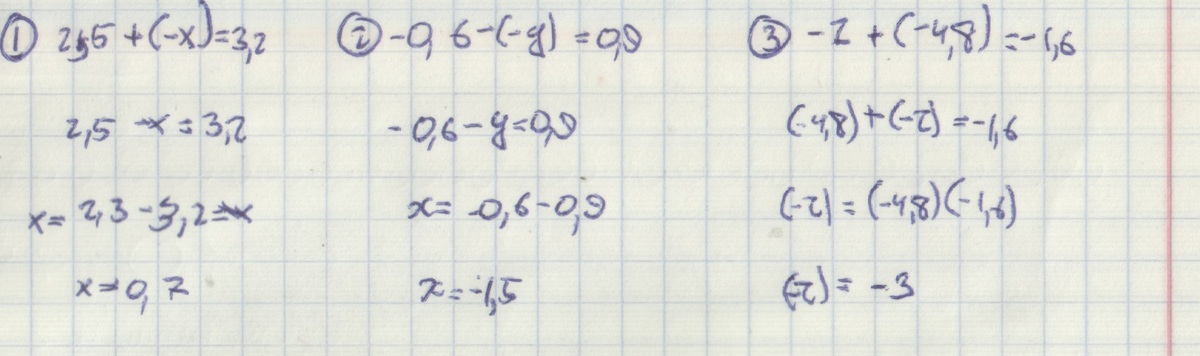 ① 2,5 + (-x) = 3,2
2,5 -x = 3,2
x = 2,3 - 3,2
x = 0,7
② -0,6 - (-y) = 0,9
-0,6 - y = 0,9
x = -0,6 - 0,9
x = -1,5
③ -z + (-4,8) = -1,6
(-4,8) + (-z) = -1,6
(-z) = (-4,8) (-1,6)
(-z) = -3